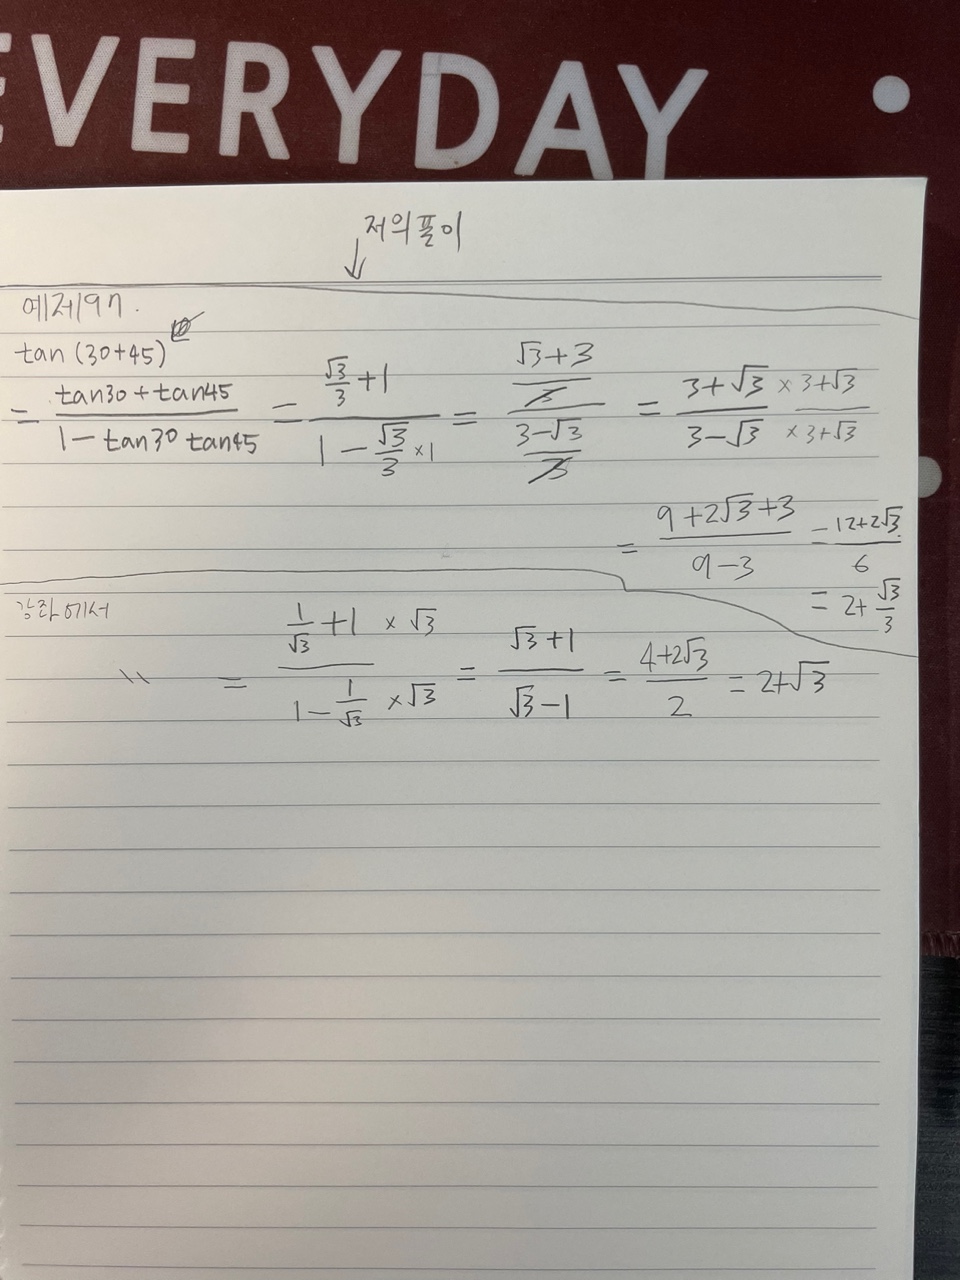 EVERYDAY
저의풀이
↓
예제197.
tan (30+45)
= (tan30 + tan45)/(1 - tan30 tan45) = (√3/3 + 1)/(1 - √3/3 ×1) = ((√3+3)/3)/((3-√3)/3) = (3+√3)/(3-√3) × (3+√3)/(×3+√3)
= (9+2√3+3)/(9-3) = (12+2√3)/6
= 2+ √3/3
강좌에서
〃 = (1/√3 +1 ×√3)/(1 - 1/√3 ×√3) = (√3+1)/(√3-1) = (4+2√3)/2 = 2+√3